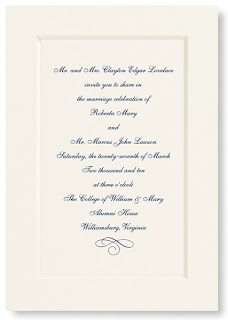 Mr. and Mrs. Clayton Edgar Lovelace
invite you to share in
the marriage celebration of
Roberta Mary
and
Mr. Marcus John Lawson
Saturday, the twenty-seventh of March
Two thousand and ten
at three o'clock
The College of William & Mary
Alumni House
Williamsburg, Virginia